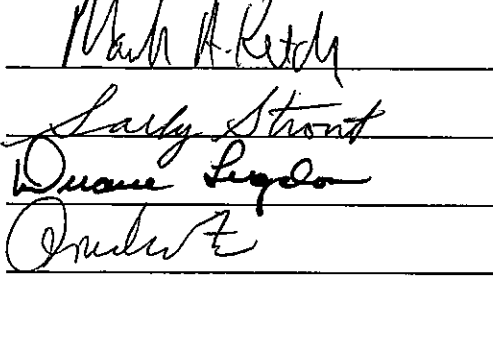 Mark A. Ketch
Sally Stront
Duane Lugdon